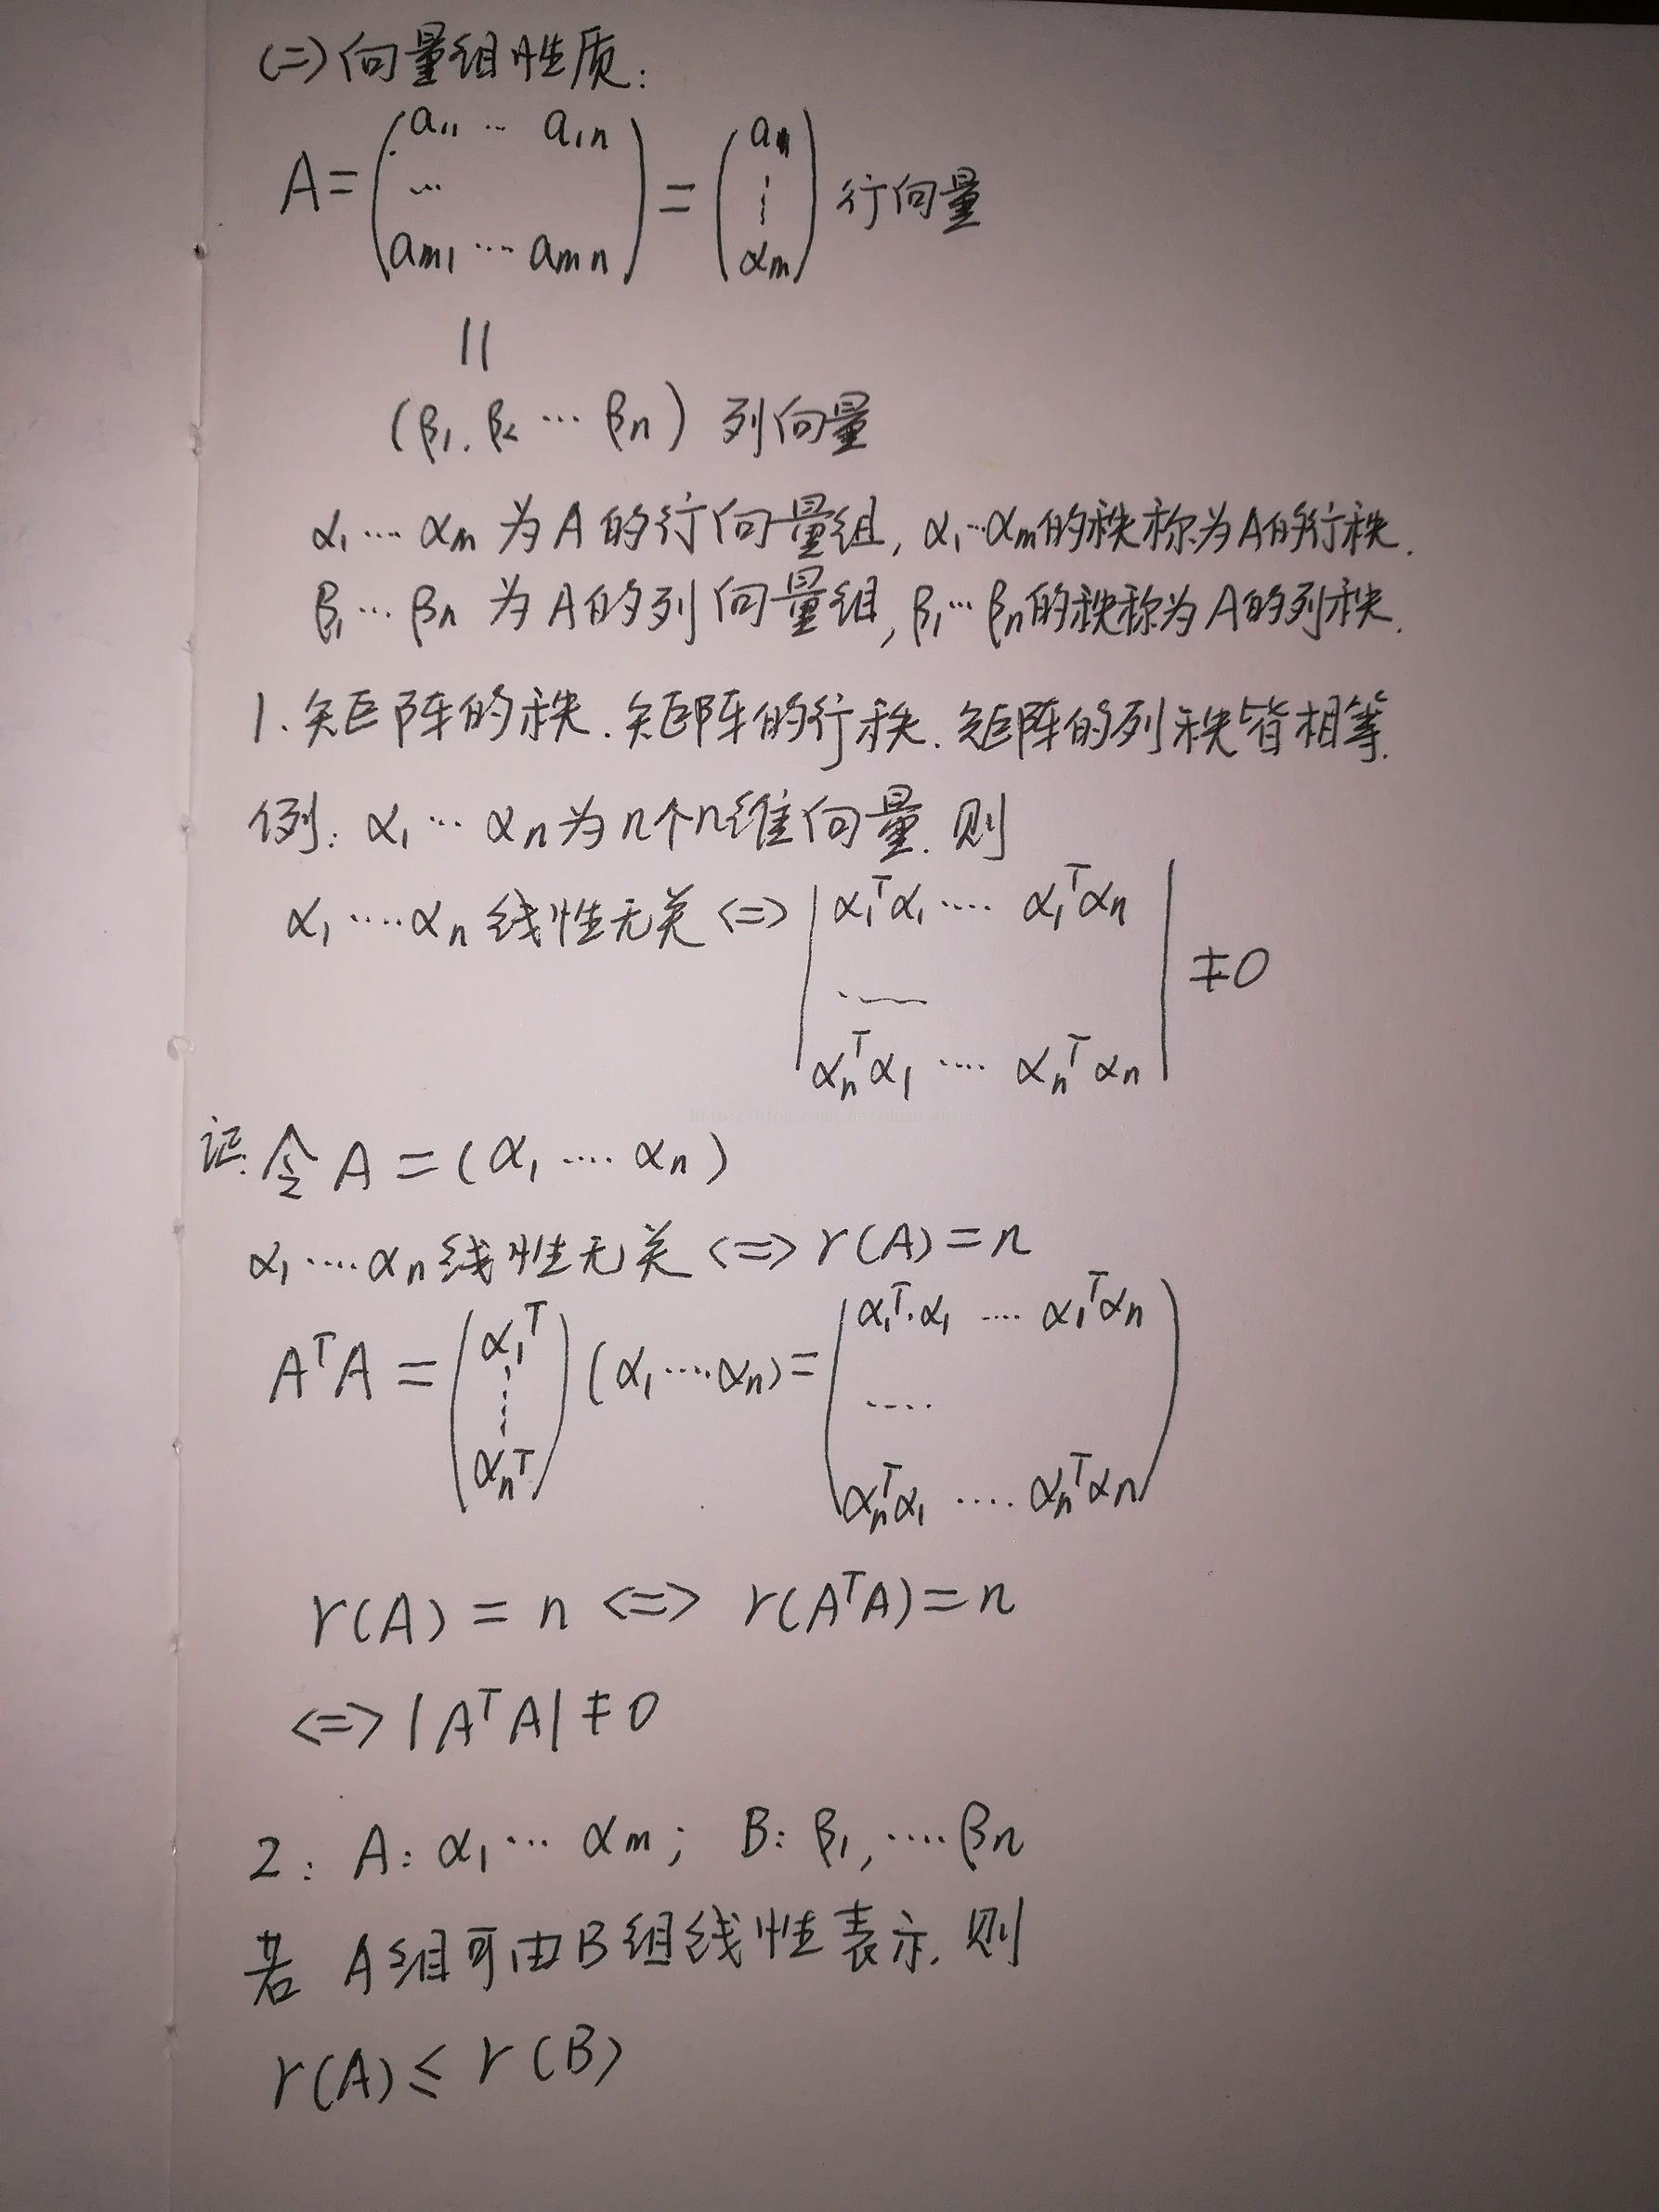 (二)向量组性质:
A = ( a₁₁ ‥ a₁n … am₁ … amn ) = ( a₁ ⋮ αm ) 行向量
||
(β₁. β₂ … βn) 列向量
α₁ … αm 为A的行向量组, α₁…αm的秩称为A的行秩.
β₁ … βn 为A的列向量组, β₁…βn的秩称为A的列秩.
1. 矩阵的秩. 矩阵的行秩. 矩阵的列秩皆相等.
例: α₁ … αn为n个n维向量. 则
α₁ …. αn 线性无关 <=> | α₁ᵀα₁ …. α₁ᵀαn …… αnᵀα₁ …. αnᵀαn | ≠0
证: 令 A = (α₁ …. αn)
α₁ …. αn线性无关 <=> r(A) = n
AᵀA = ( α₁ᵀ ⋮ αnᵀ ) (α₁ …. αn) = ( α₁ᵀ·α₁ …. α₁ᵀαn …. αnᵀα₁ …. αnᵀαn )
r(A) = n <=> r(AᵀA) = n
<=> |AᵀA| ≠ 0
2: A: α₁ … αm; B: β₁, …. βn
若 A组可由B组线性表示. 则
r(A) ≤ r(B)